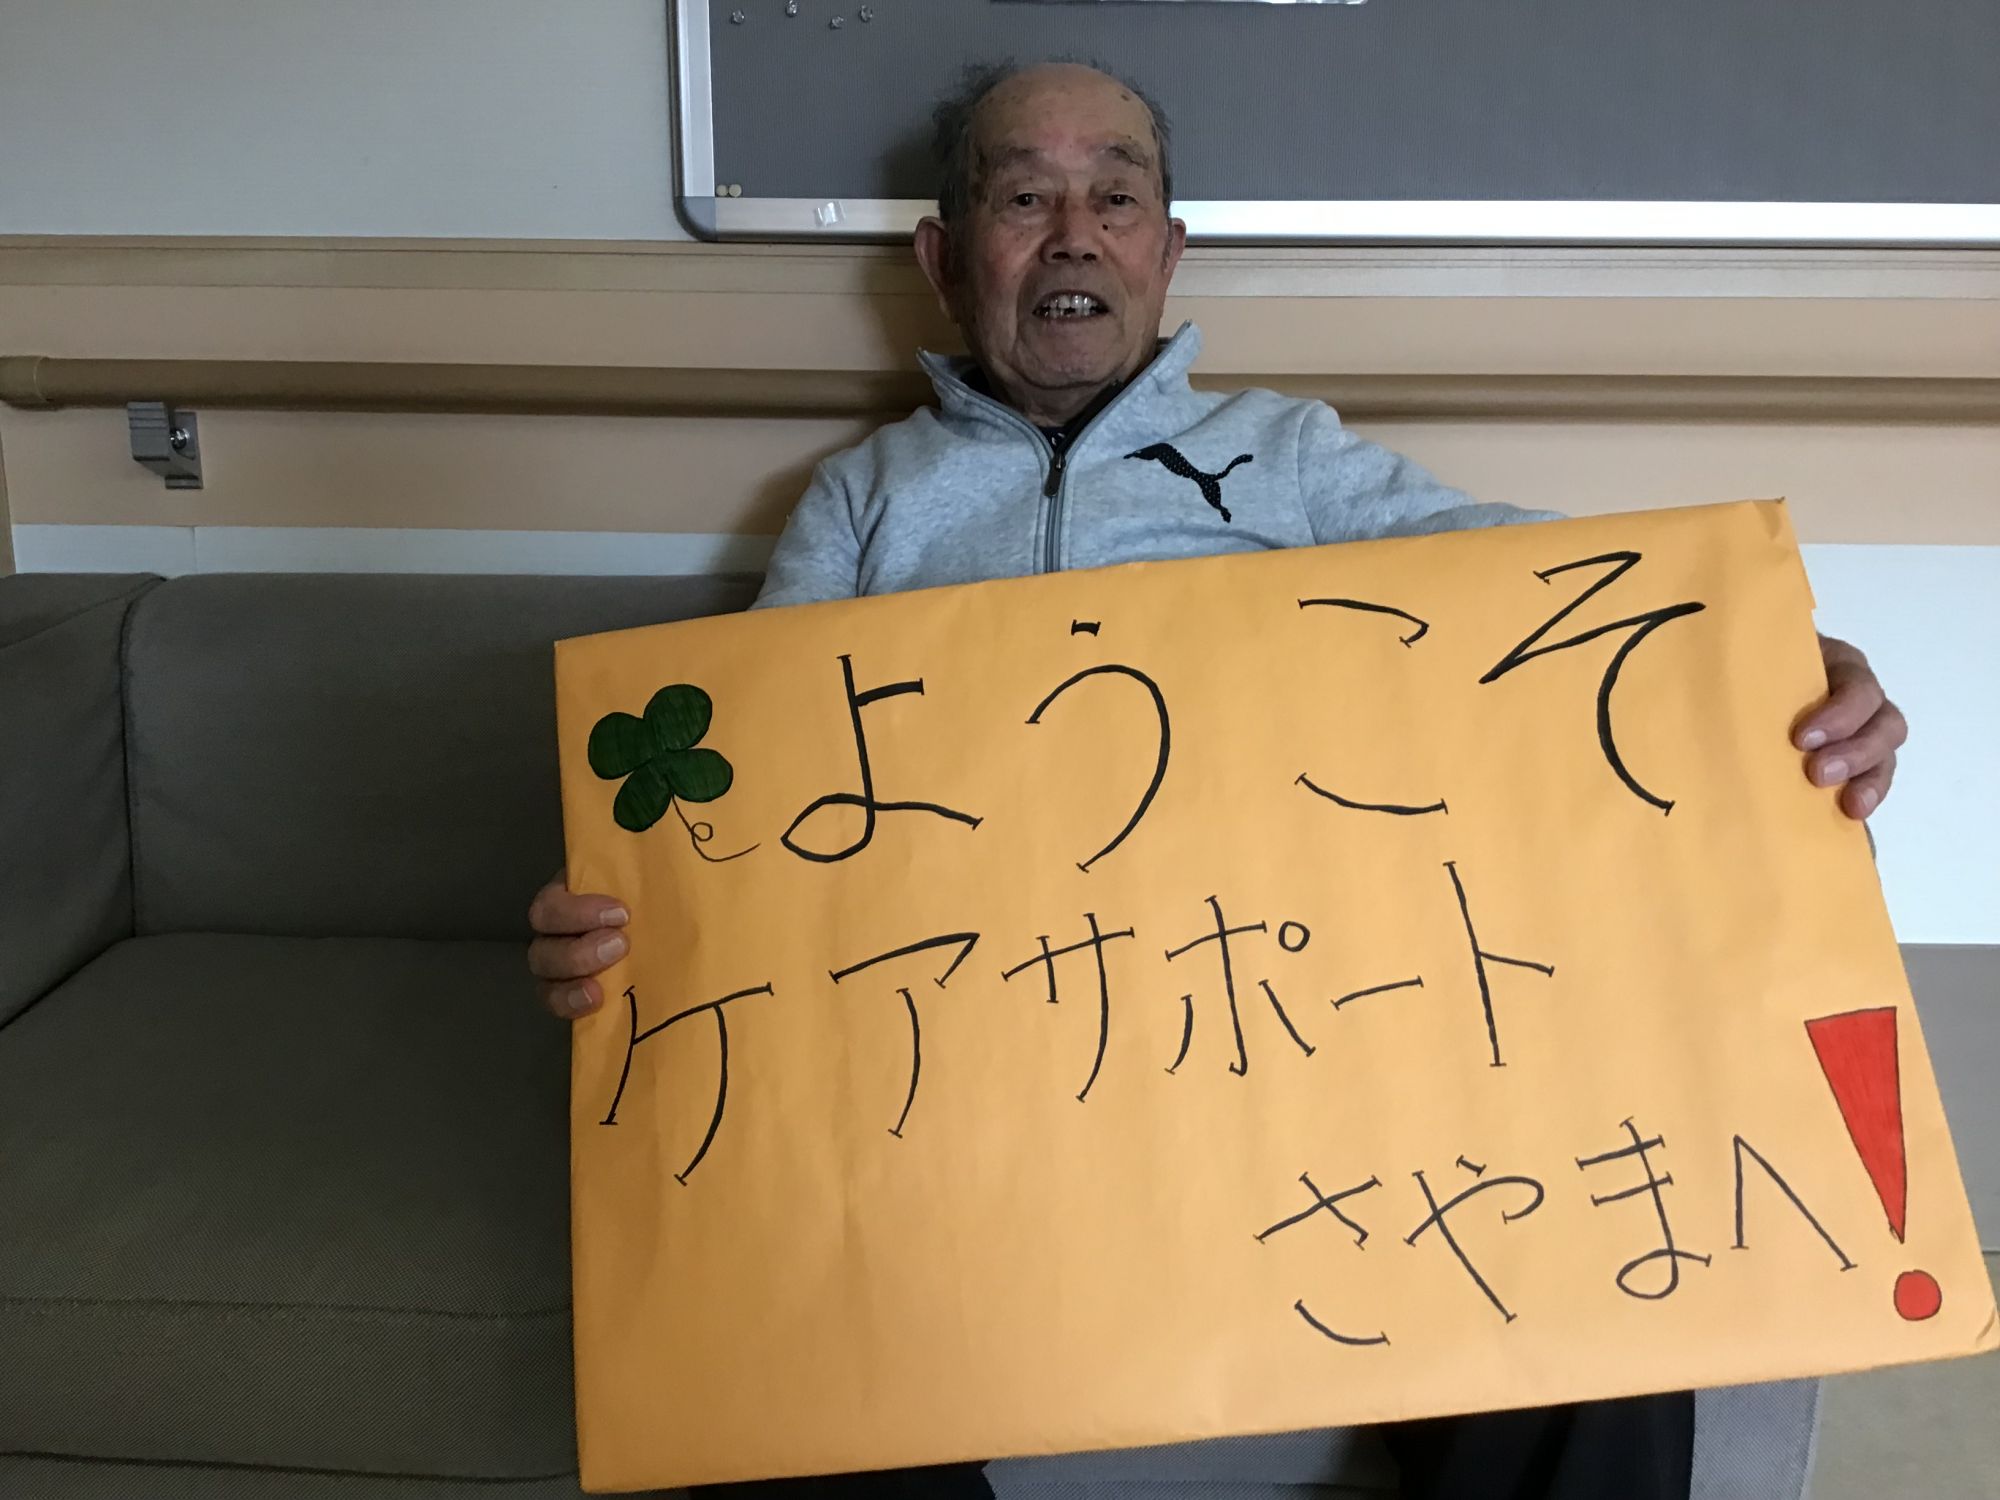 ようこそ
ケアサポート
さやまへ!